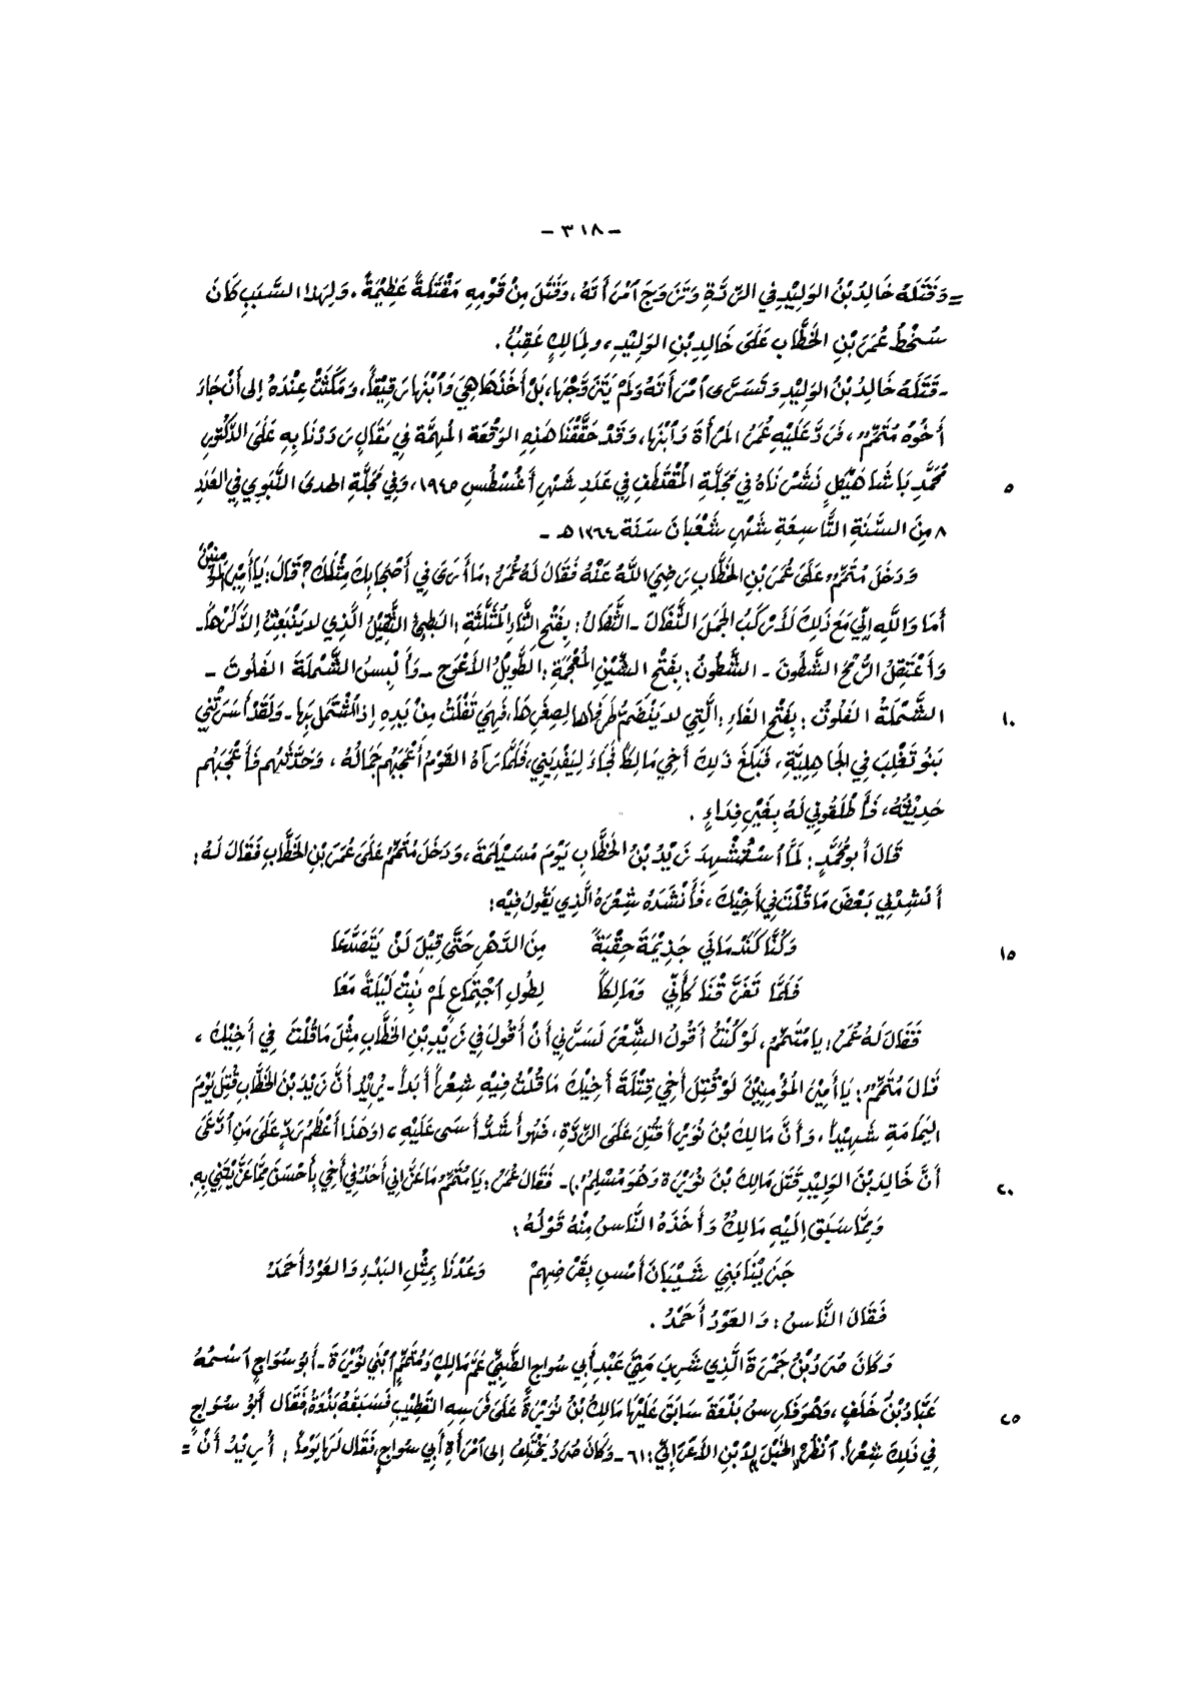 - ٣١٨ -
= وَقَتَلَهُ خَالِدُ بْنُ الوَلِيْدِ فِي الرِّدَّةِ وَتَزَوَّجَ ٱمْرَأَتَهُ، وَقُتِلَ مِنْ قَوْمِهِ مَقْتَلَةٌ عَظِيْمَةٌ. وَلِهَذا السَّبَبِ كَانَ
سُخْطُ عُمَرَ بْنِ الخَطَّابِ عَلَى خَالِدِ بْنِ الوَلِيْدِ، ولِمَالِكٍ عَقِبٌ.
- قَتَلَهُ خَالِدُ بْنُ الوَلِيْدِ وَتَسَرَّى ٱمْرَأَتَهُ وَلَمْ يَتَزَوَّجْهَا، بَلْ أَخَذَهَا هِيَ وَٱبْنُهَا رَقِيْقاً، وَمَكَثَتْ عِنْدَهُ إلى أَنْ جَاءَ
أَخُوْهُ مُتَمِّمٌ، فَرَدَّ عَلَيْهِ عُمَرُ المَرْأَةَ وَٱبْنَهَا، وَقَدْ حَقَّقْنَا هَذِهِ الوَقْعَةَ المُهِمَّةَ فِي مَقَالٍ رَدَدْنَا بِهِ عَلَى الدُّكْتُورِ
مُحَمَّدِ بَاشَا هَيْكَلٍ نَشَرْنَاهُ فِي مَجَلَّةِ المُقْتَطَفِ فِي عَدَدِ شَهْرِ أَغُسْطُسِ ١٩٤٥، وَفِي مَجَلَّةِ الهدى النَّبَوِي فِي العَدَدِ
٥
٨ مِنَ السَّنَةِ التَّاسِعَةِ شَهْرِ شَعْبَانَ سَنَةَ ١٣٦٤ هـ -
وَدَخَلَ مُتَمِّمٌ عَلَى عُمَرَ بْنِ الخَطَّابِ رَضِيَ اللَّهُ عَنْهُ فَقَالَ لَهُ عُمَرُ: مَا أَرَى فِي أَصْحَابِكَ مِثْلَكَ؟ قَالَ: يَا أَمِيْرَ المُؤْمِنِيْنَ
أَمَا وَاللَّهِ إِنِّي مَعَ ذَلِكَ لَأَرْكَبُ الجَمَلَ الثَّفَالَ - الثَّفَالُ: بِفَتْحِ الثَّاءِ المُثَلَّثَةِ: البَطِيْءُ الثَّقِيْلُ الَّذِي لا يَنْبَعِثُ إلَّا كُرْهاً -
وَأَعْتَقِلُ الرُّمْحَ الشَّطُونَ - الشَّطُونُ: بِفَتْحِ الشِّيْنِ المُعْجَمَةِ: الطَّوِيْلُ الأَعْوَجُ - وَأَلْبِسُ الشَّمْلَةَ الفَلُوتَ -
الشَّمْلَةُ الفَلُوتُ: بِفَتْحِ الفَاءِ: الَّتِي لا يَنْضَمُّ طَرَفَاهَا لِصِغَرِهَا، فَهِيَ تُفْلَتُ مِنْ يَدِهِ إِذَا ٱشْتَمَلَ بِهَا - وَلَقَدْ أَسَرَتْنِي
١٠
بَنُو تَغْلِبَ فِي الجَاهِلِيَّةِ، فَبَلَغَ ذَلِكَ أَخِي مَالِكاً فَجَاءَ لِيَفْدِيَنِي، فَلَمَّا رَآهُ القَوْمُ أَعْجَبَهُم جَمَالُهُ، وَحَدَّثَهُم فَأَعْجَبَهُم
حَدِيْثُهُ، فَأَطْلَقُونِي لَهُ بِغَيْرِ فِدَاءٍ.
قَالَ أَبُو مُحَمَّدٍ: لَمَّا ٱسْتُشْهِدَ زَيْدُ بْنُ الخَطَّابِ يَوْمَ مُسَيْلِمَةَ، وَدَخَلَ مُتَمِّمٌ عَلَى عُمَرَ بْنِ الخَطَّابِ فَقَالَ لَهُ:
أَنْشِدْنِي بَعْضَ مَا قُلْتَ فِي أَخِيْكَ، فَأَنْشَدَهُ شِعْرَهُ الَّذِي يَقُولُ فِيْهِ:
وَكُنَّا كَنَدْمَانَي جَذِيْمَةَ حِقْبَةً مِنَ الدَّهْرِ حَتَّى قِيْلَ لَنْ يَتَصَدَّعَا
١٥
فَلَمَّا تَفَرَّقْنَا كَأَنِّي وَمَالِكاً لِطُولِ ٱجْتِمَاعٍ لَمْ نَبِتْ لَيْلَةً مَعَا
فَقَالَ لَهُ عُمَرُ: يا مُتَمِّمُ، لَوْ كُنْتُ أَقُولُ الشِّعْرَ لَسَرَّنِي أَنْ أَقُولَ فِي زَيْدِ بْنِ الخَطَّابِ مِثْلَ مَا قُلْتَ فِي أَخِيْكَ،
قَالَ مُتَمِّمٌ: يَا أَمِيْرَ المُؤْمِنِيْنَ لَوْ قُتِلَ أَخِي قِتْلَةَ أَخِيْكَ مَا قُلْتُ فِيْهِ شِعْراً أَبَداً - يُرِيْدُ أَنَّ زَيْدَ بْنَ الخَطَّابِ قُتِلَ يَوْمَ
اليَمَامَةِ شَهِيْداً، وَأَنَّ مَالِكَ بْنَ نُوَيْرَةَ قُتِلَ عَلَى الرِّدَّةِ، فَهُوَ أَشَدُّ أَسَىً عَلَيْهِ، (وَهَذَا أَعْظَمُ رَدٍّ عَلَى مَنِ ٱدَّعَى
أَنَّ خَالِدَ بْنَ الوَلِيْدِ قَتَلَ مَالِكَ بْنَ نُوَيْرَةَ وَهُوَ مُسْلِمٌ) - فَقَالَ عُمَرُ: يَا مُتَمِّمُ مَا عَزَّانِي أَحَدٌ فِي أَخِي بِأَحْسَنَ مِمَّا عَزَّيْتَنِي بِهِ.
٢٠
وَمِمَّا سَبَقَ إِلَيْهِ مَالِكٌ وَأَخَذَهُ النَّاسُ مِنْهُ قَوْلُهُ:
جَزَيْنَا بَنِي شَيْبَانَ أَمْسِ بِقَرْضِهِمْ وَعُدْنَا بِمِثْلِ البَدْءِ وَالعَوْدُ أَحْمَدُ
فَقَالَ النَّاسُ: وَالعَوْدُ أَحْمَدُ.
وَكَانَ صُرَدُ بْنُ جَمْرَةَ الَّذِي شَرِبَ مَنِيَّ عَبْدِ أَبِي سُواجٍ الضَّبِّيِّ عَمَّ مَالِكٍ وَمُتَمِّمٍ ٱبْنَي نُوَيْرَةَ - أَبُو سُوَاجٍ ٱسْمُهُ
عَبَّادُ بْنُ خَلَفٍ، وَهُوَ فَارِسُ بَذْوَةَ سَابَقَ عَلَيْهَا مَالِكَ بْنَ نُوَيْرَةَ عَلَى فَرَسِهِ القَطِيْبِ فَسَبَقَهُ بَذْوَةُ، فَقَالَ أَبُو سُوَاجٍ
٢٥
فِي ذَلِكَ شِعْراً. ٱنْظُرْ الخَيْلَ لِابْنِ الأَعْرَابِيِّ: ٦١ - وَكَانَ صُرَدُ يَخْتَلِفُ إلى ٱمْرَأَةِ أَبِي سواجٍ، فَقَالَ لَهَا يَوْماً: أُرِيْدُ أَنْ =